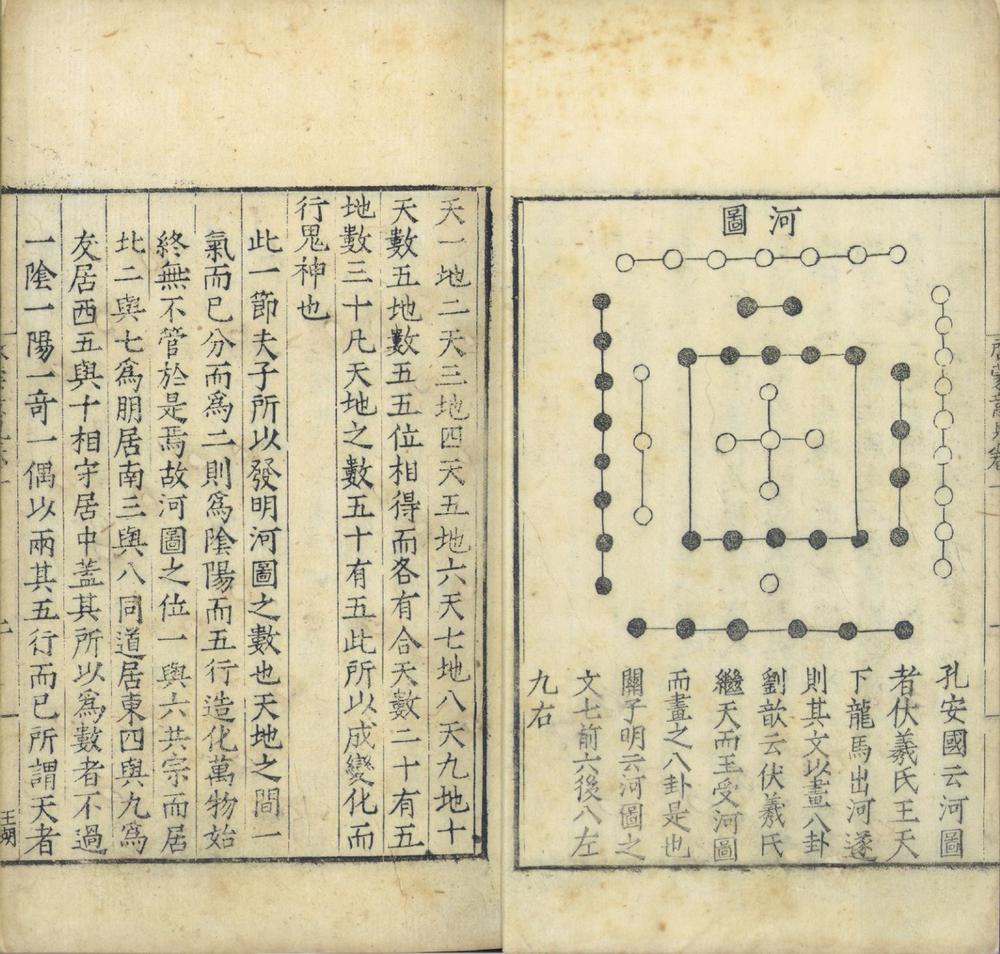 河圖
孔安國云河圖
者伏羲氏王天
下龍馬出河遂
則其文以畫八卦
劉歆云伏羲氏
繼天而王受河圖
而畫之八卦是也
關子明云河圖之
文七前六後八左
九右
天一地二天三地四天五地六天七地八天九地十
天數五地數五五位相得而各有合天數二十有五
地數三十凡天地之數五十有五此所以成變化而
行鬼神也
此一節夫子所以發明河圖之數也天地之間一
氣而已分而爲二則爲陰陽而五行造化萬物始
終無不管於是焉故河圖之位一與六共宗而居
北二與七爲朋居南三與八同道居東四與九爲
友居西五與十相守居中蓋其所以爲數者不過
一陰一陽一奇一偶以兩其五行而已所謂天者
王湖